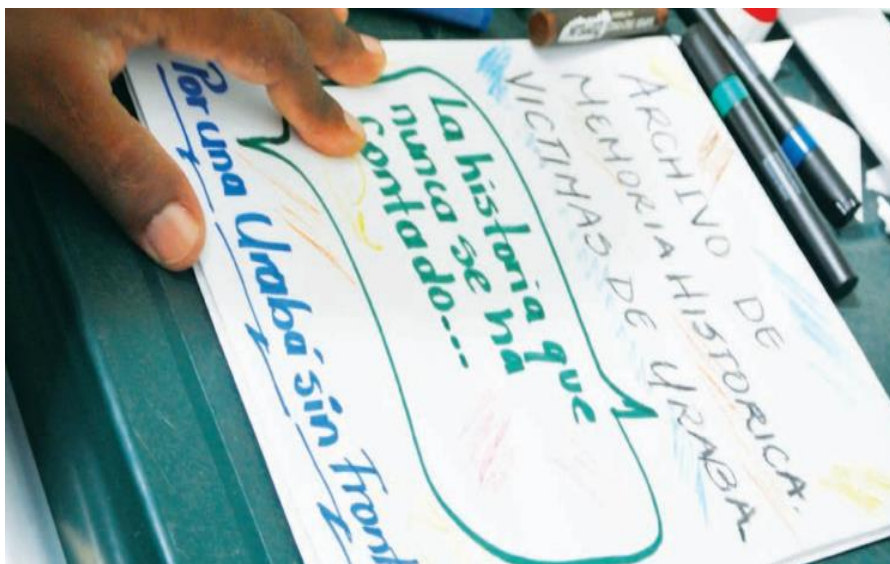 ARCHIVO DE
MEMORIA HISTORICA.
VICTIMAS DE URABA
La historia que
nunca se ha
contado---
Por una Urabá sin Front